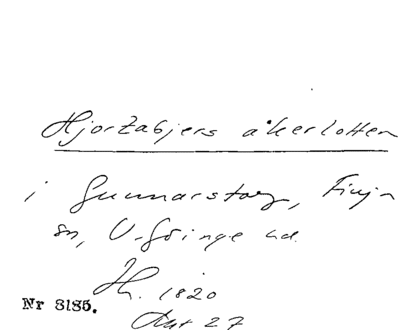 Hjortabjers åkerlotten
i Gunnarstorp, Finja
sn, V. Göinge hd.
Hh. 1820
Nr 3185.
Akt 27